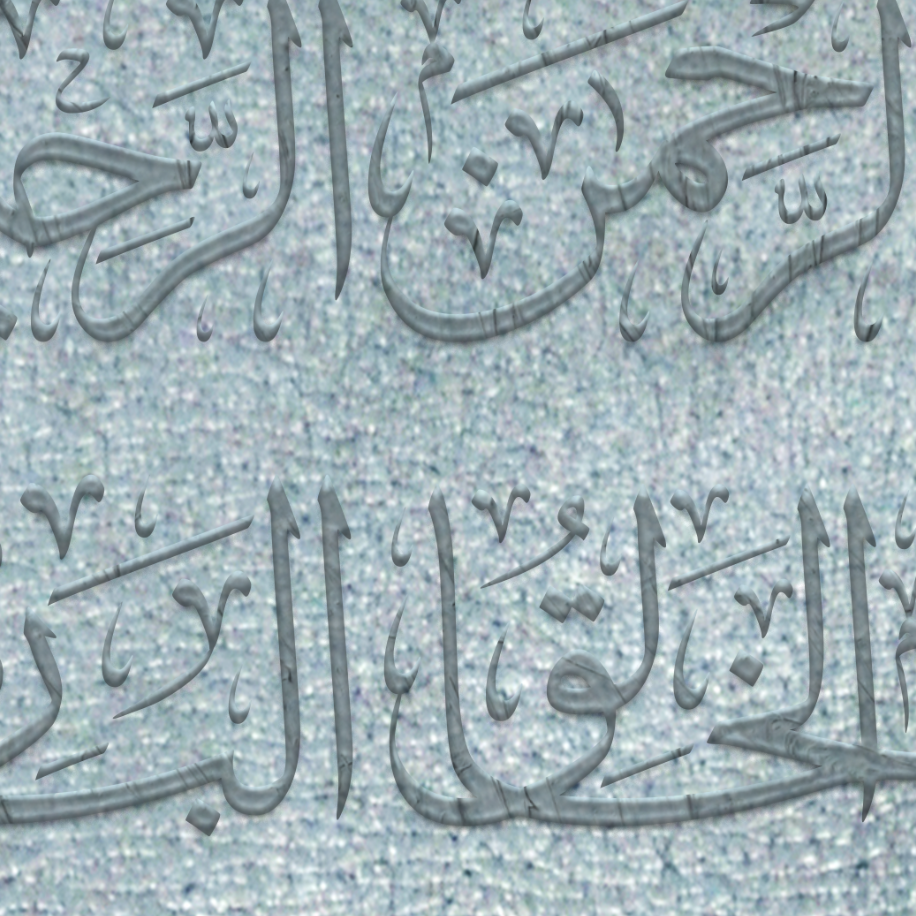 لرحمن الرحـ
الخالق البار